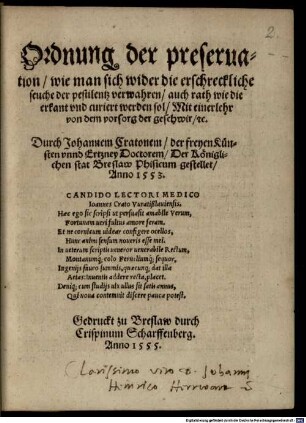 2.
Ordnung der preserua-
tion / wie man sich wider die erschreckliche
seuche der pestilentz verwahren / auch rath wie die
erkant vnd curiert werden sol / Mit einer lehr
von dem vorsorg der geschwir / ꝛc.
Durch Johannem Cratonem / der freyen Kün-
sten vnnd Ertzney Doctorem / Der Königli-
chen stat Breslaw Phisicum gestellet /
Anno 1553.
CANDIDO LECTORI MEDICO
Ioannes Crato Vratislauiensis.
Hæc ego sic scripsi vt persuasit amabile Verum,
Fortunam veri fultus amore feram.
Et ne corniceum videar configere ocellos,
Hunc animi sensum noueris esse mei.
In veterum scriptis veneror venerabile Rectum,
Montanumq́; colo Ferneliumq́; sequor,
Ingenijs suero summis, quæcunq́; dat illa
Artis inuentis addere recta, placet.
Deniq; cum studijs vix vllus sit satis annus,
Qui noua contemnit discere pauca potest.
Gedruckt zu Breslaw durch
Crispinum Scharffenberg.
Anno 1555.
Clarissimo viro D. Johanni
Heinrico